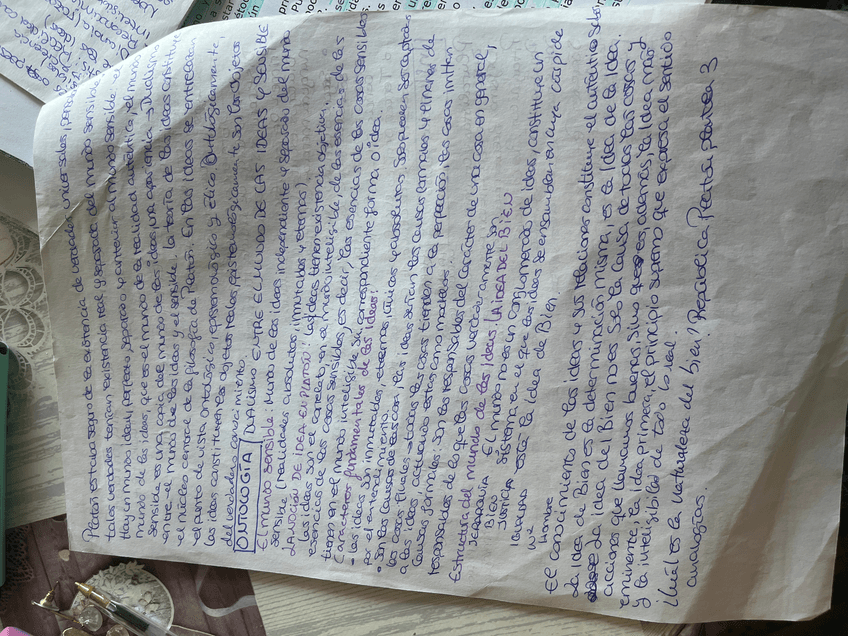 Platón estaba seguro de la existencia de verdades universales, pero
tales verdades tenían existencia real y separada del mundo sensible.
Hay un mundo ideal, perfecto, separado y anterior al mundo sensible: el
mundo de las ideas, que es el mundo de la realidad auténtica, el mundo
sensible es una copia del mundo de las ideas, una apariencia → Dualismo
entre el mundo de las ideas y el sensible. La teoría de las ideas constituye
el núcleo central de la filosofía de Platón. En las ideas se entrecruzan
el punto de vista ontológico, epistemológico y ético. Ontológicamente,
las ideas constituyen los objetos reales, epistemológicamente son los objetos
del verdadero conocimiento.
ONTOLOGÍA (DUALISMO ENTRE EL MUNDO DE LAS IDEAS Y SENSIBLE
El mundo sensible: Mundo de las ideas independiente y separado del mundo
sensible (realidades absolutas, inmutables y eternas)
LA NOCIÓN DE IDEA EN PLATÓN: Las ideas tienen existencia objetiva.
las ideas son el correlato, en el mundo inteligible, de las esencias de las
esencias de las cosas sensibles, es decir, las esencias de las cosas sensibles
tienen en el mundo inteligible su correspondiente forma o idea.
Caracteres fundamentales de las ideas:
- las ideas son inmutables, eternas, únicas y absolutas. Solo pueden ser captadas
por el entendimiento.
- Son las causas de las cosas: las ideas serían las causas formales y el
las cosas finales: todas las cosas tienden a la perfección, las cosas imitan
a las ideas, actuando estas como modelos.
causas formales: son las responsables del carácter de una cosa en general,
responsables de lo que las cosas verdaderamente son.
Estructura del mundo de las ideas. LA IDEA DEL BIEN
JERARQUÍA El mundo no es un conglomerado de ideas, constituye un
BIEN sistema en el que las ideas se ensamblan en cuya cúspide
JUSTICIA está la Idea de Bien.
IGUALDAD
Hombre
El conocimiento de las ideas y sus relaciones constituye el auténtico saber
La idea de Bien es la determinación misma, es la Idea de la Idea.
La idea del Bien no es solo la causa de todas las cosas y
acciones que llamamos buenas, sino que es, además, la idea más
eminente, la Idea primera, el principio supremo que expresa el sentido
y la inteligibilidad de todo lo real.
¿Cuál es la naturaleza del bien? República Platón, plantea 3
analogías.